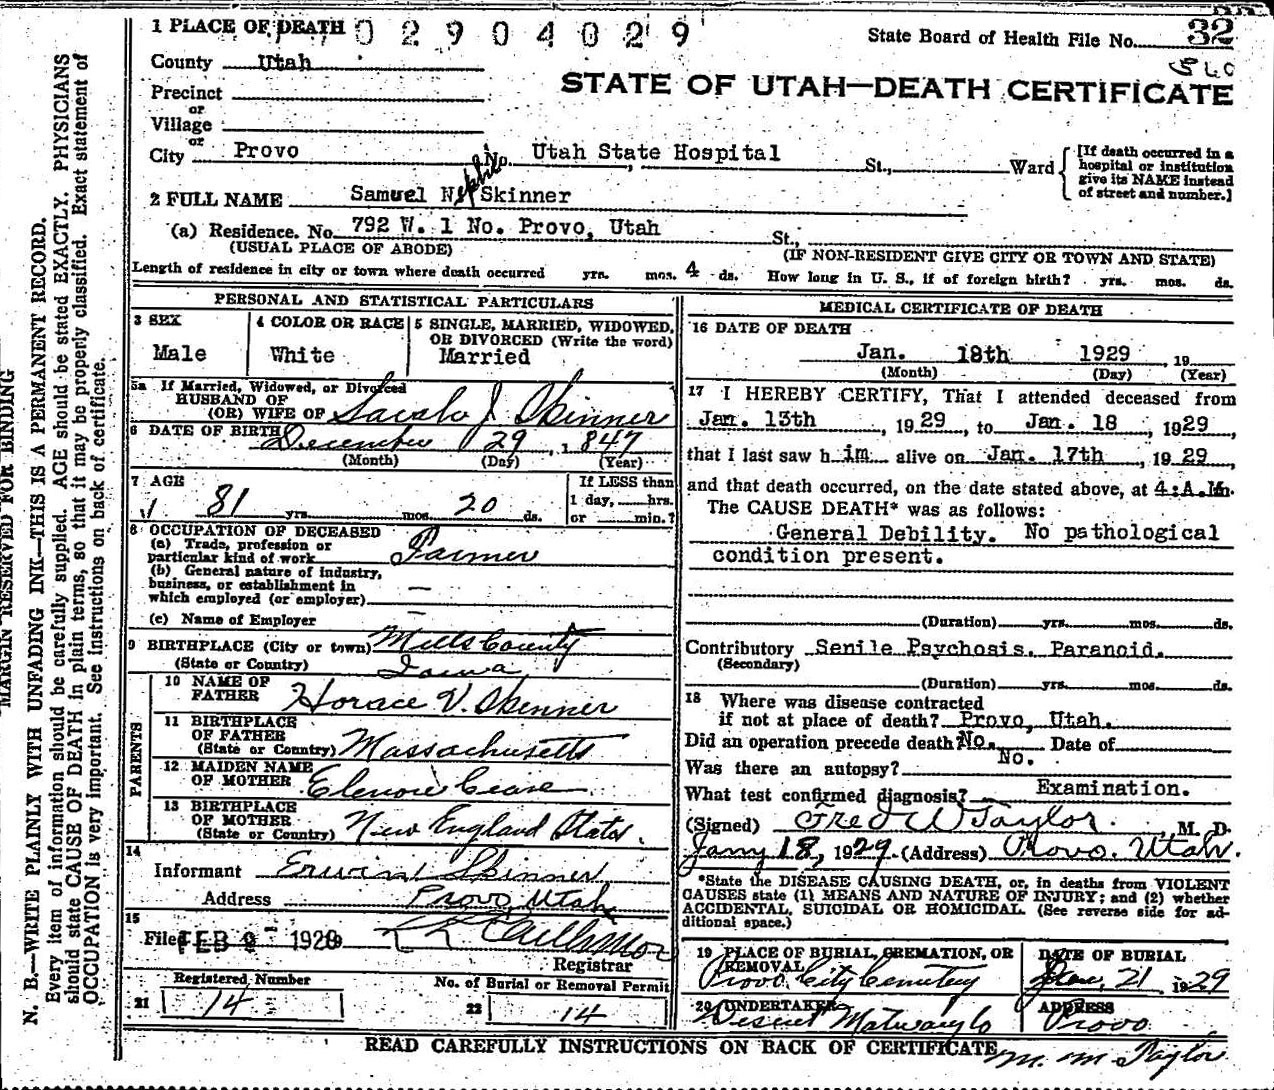 1 PLACE OF DEATH 02904029
State Board of Health File No. 32
560
County Utah
STATE OF UTAH—DEATH CERTIFICATE
Precinct
or
Village
or
City Provo No. Utah State Hospital St., Ward
[If death occurred in a
hospital or institution
give its NAME instead
of street and number.]
2 FULL NAME Samuel N. Skinner
Nephi
(a) Residence. No. 792 W. 1 No. Provo, Utah St.,
(USUAL PLACE OF ABODE) (IF NON-RESIDENT GIVE CITY OR TOWN AND STATE)
Length of residence in city or town where death occurred yrs. mos. 4 ds. How long in U. S., if of foreign birth? yrs. mos. ds.
PERSONAL AND STATISTICAL PARTICULARS
3 SEX
Male
4 COLOR OR RACE
White
5 SINGLE, MARRIED, WIDOWED,
OR DIVORCED (Write the word)
Married
5a If Married, Widowed, or Divorced
HUSBAND OF
(OR) WIFE OF Sarah J Skinner
6 DATE OF BIRTH December 29, 1847
(Month) (Day) (Year)
7 AGE
81 yrs. mos. 20 ds.
If LESS than
1 day, hrs.
or min.?
8 OCCUPATION OF DECEASED
(a) Trade, profession or
particular kind of work Farmer
(b) General nature of industry,
business, or establishment in
which employed (or employer) —
(c) Name of Employer —
9 BIRTHPLACE (City or town) Mills County
(State or Country) Iowa
PARENTS
10 NAME OF
FATHER Horace V. Skinner
11 BIRTHPLACE
OF FATHER
(State or Country) Massachusetts
12 MAIDEN NAME
OF MOTHER Elenoir Cease
13 BIRTHPLACE
OF MOTHER
(State or Country) New England States.
14
Informant Erwin Skinner
Address Provo Utah
15
Filed FEB 9 1929
Registrar
Registered Number
21 14
No. of Burial or Removal Permit
22 14
MEDICAL CERTIFICATE OF DEATH
16 DATE OF DEATH
Jan. 18th 1929, 19
(Month) (Day) (Year)
17 I HEREBY CERTIFY, That I attended deceased from
Jan. 13th, 1929, to Jan. 18, 1929,
that I last saw him alive on Jan. 17th, 1929,
and that death occurred, on the date stated above, at 4:A.M.
The CAUSE DEATH* was as follows:
General Debility. No pathological
condition present.
(Duration) yrs. mos. ds.
Contributory Senile Psychosis. Paranoid.
(Secondary)
(Duration) yrs. mos. ds.
18 Where was disease contracted
if not at place of death? Provo, Utah.
Did an operation precede death? No. Date of
Was there an autopsy? No.
What test confirmed diagnosis? Examination.
(Signed) Fred W Taylor, M. D.
Jany 18, 1929. (Address) Provo. Utah.
*State the DISEASE CAUSING DEATH, or, in deaths from VIOLENT
CAUSES state (1) MEANS AND NATURE OF INJURY; and (2) whether
ACCIDENTAL, SUICIDAL OR HOMICIDAL. (See reverse side for ad-
ditional space.)
19 PLACE OF BURIAL, CREMATION, OR
REMOVAL
Provo City Cemetery
DATE OF BURIAL
Jan. 21 1929
20 UNDERTAKER
Deseret Mortuary Co
ADDRESS
Provo
M. M Taylor
READ CAREFULLY INSTRUCTIONS ON BACK OF CERTIFICATE
MARGIN RESERVED FOR BINDING
N. B.—WRITE PLAINLY WITH UNFADING INK—THIS IS A PERMANENT RECORD.
Every item of information should be carefully supplied. AGE should be stated EXACTLY. PHYSICIANS
should state CAUSE OF DEATH in plain terms, so that it may be properly classified. Exact statement of
OCCUPATION is very important. See Instructions on back of certificate.